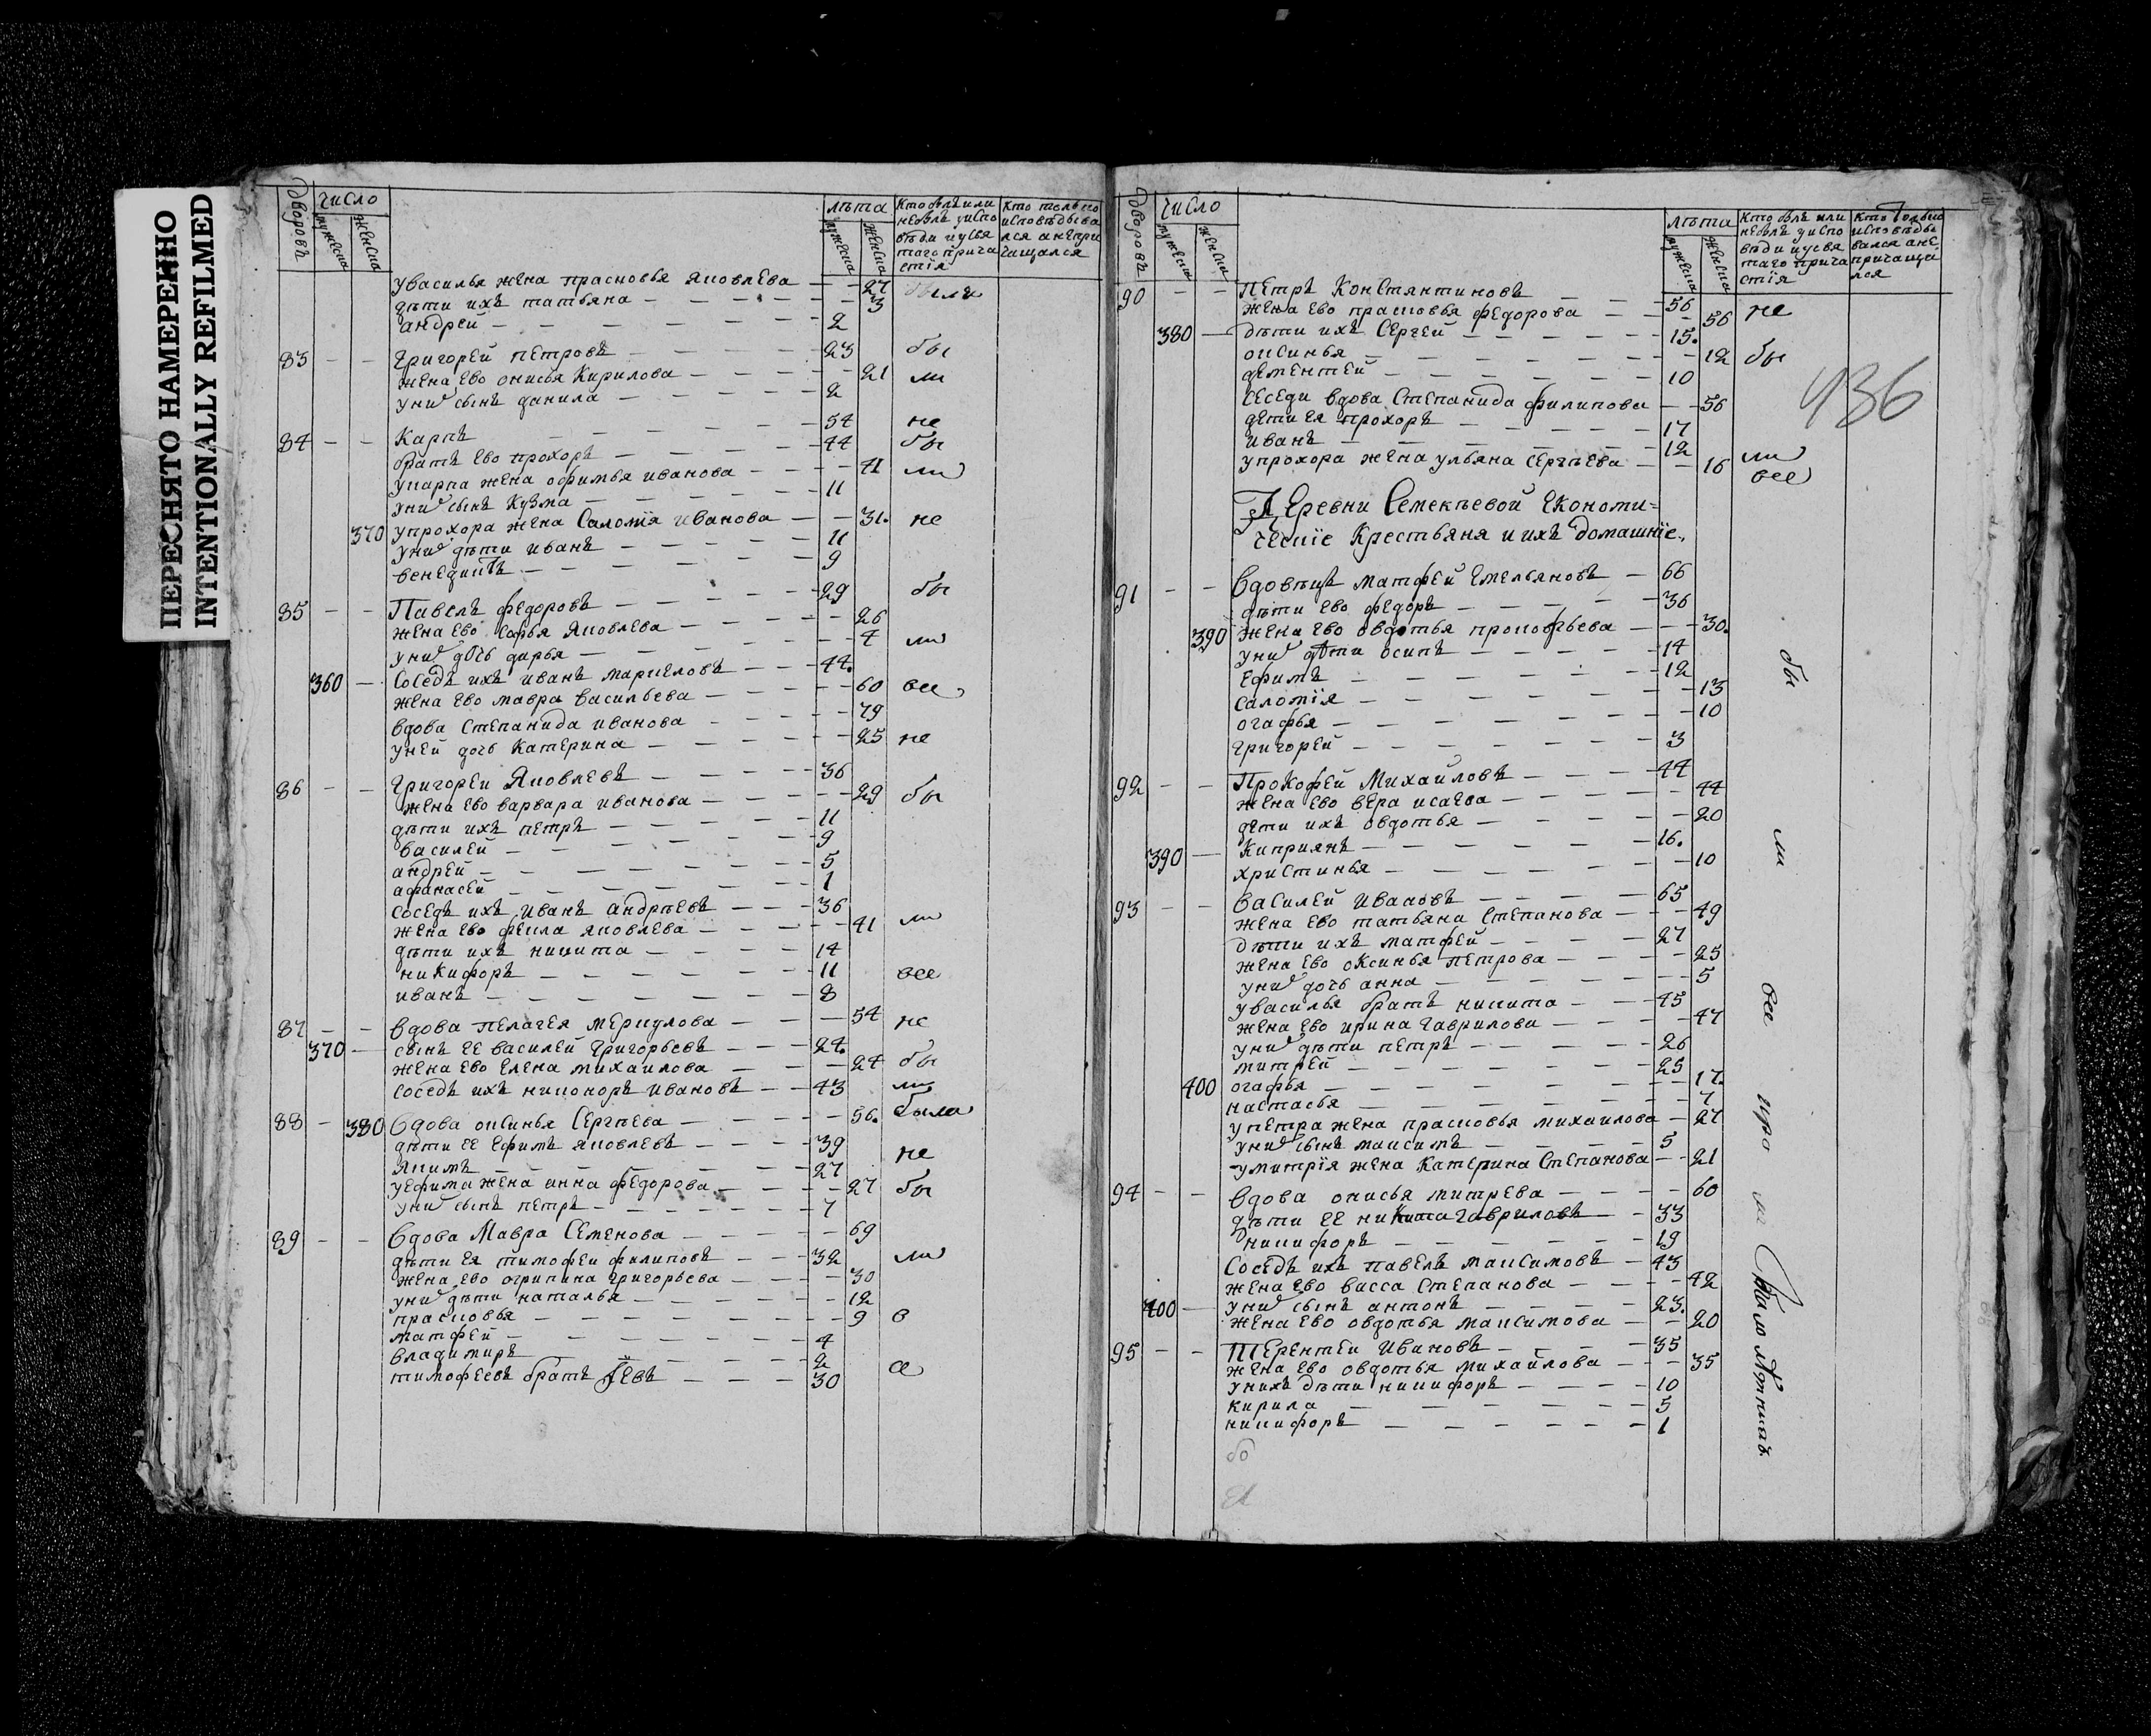 ПЕРЕСНЯТО НАМЕРЕННО
INTENTIONALLY REFILMED
дворовъ число мужеска женска лѣта мужеска женска кто былъ или небылъ уиспо вѣди исвя таго прича стїя кто только исповѣдыва лся анепри чащался
увасилья жена прасковья яковлева — 27 были
дѣти ихъ татьяна — 3
андрей — 2
83 — — григорей петровъ — 23 бы
жена ево онисья кирилова — 21 ли
уних сынъ данила — 2
84 — — карпъ — 54 не
братъ ево прохоръ — 44 бы
укарпа жена офимья иванова — 41 ли
уних сынъ кузма — 11
370 упрохора жена саломїя иванова — 31. не
уних дѣти иванъ — 11
венедиктъ — 9
85 — — Павелъ федоровъ — 29 бы
жена ево софья яковлева — 26
уних дочь дарья — 4 ли
360 — соседъ ихъ иванъ маркеловъ — 44.
жена ево мавра васильева — 60 все
вдова степанида иванова — 79
уней дочь катерина — 25 не
86 — — григорей яковлевъ — 36
жена ево варвара иванова — 29 бы
дѣти ихъ петръ — 11
василей — 9
андрей — 5
афанасей — 1
соседъ ихъ иванъ андрѣевъ — 36
жена ево фекла яковлева — 41 ли
дѣти ихъ никита — 14
никифоръ — 11 все
иванъ — 8
87 — — вдова пелагея меркулова — 54 не
370 — сынъ ее василей григорьевъ — 24.
жена ево елена михаилова — 24 бы
соседъ ихъ никоноръ ивановъ — 43 ли
88 — 380 вдова оксинья сергѣева — 56. была
дѣти ее ефимъ яковлевъ — 39
якимъ — 27 не
уефима жена анна федорова — 27 бы
уних сынъ петръ — 7
89 — — вдова Мавра Семенова — 69
дѣти ея тимофей филиповъ — 32 ли
жена ево огрипина григорьева — 30
уних дѣти наталья — 12
прасковья — 9 в
матфей — 4
владимиръ — 2
тимофеевъ братъ — 30 се
дворовъ число мужеска женска лѣта мужеска женска кто былъ или небылъ уиспо вѣди исвя таго прича стїя кто только исповѣды вался ане причаща лся
90 — — петръ константиновъ — 56 не
жена ево прасковья федорова — 56
380 — дѣти ихъ сергей — 15.
оксинья — 12 бы
дементей — 10
436
соседи вдова степанида филипова — 56
дети ея прохоръ — 17
иванъ — 12
упрохора жена ульяна сергѣева — 16 ли
все
Деревни Семекѣевой Економи=
ческїе крестьяня и ихъ домашнїе.,
91 — — вдовецъ матфей емельяновъ — 66
дѣти ево федоръ — 36
390 жена ево овдотья прокофьева — 30.
уних дѣти осипъ — 14
ефимъ — 12
саломїя — 13
огафья — 10
григорей — 3
92 — — Прокофей Михайловъ — 44
жена ево вера исаева — 44
дети ихъ овдотья — 20
390 — киприянъ — 16.
христинья — 10
93 — — василей ивановъ — 65
жена ево татьяна степанова — 49
дѣти ихъ матфей — 27
жена ево оксинья петрова — 25
уних дочь анна — 5
увасилья братъ никита — 45
жена ево ирина гаврилова — 47
уних дѣти петръ — 26
митрей — 25
400 огафья — 17.
настасья — 7
упетра жена прасковья михаилова — 27
уних сынъ максимъ — 5
умитрїя жена катерина степанова — 21
94 — — вдова онисья митрева — 60
дѣти ее никита гавриловъ — 33
никифоръ — 19
соседъ ихъ павелъ максимовъ — 43
жена ево васса степанова — 42
400 — уних сынъ антонъ — 23.
жена ево овдотья максимова — 20
95 — — терентей ивановъ — 35
жена ево овдотья михайлова — 35
унихъ дѣти никифоръ — 10
кирила — 5
никифоръ — 1
бы ли все